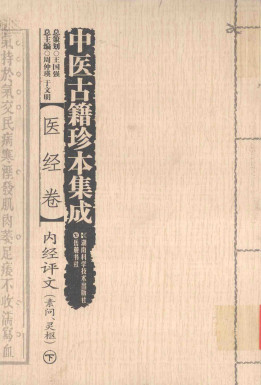 中医古籍珍本集成
总策划◎王国强
总主编◎周仲瑛 于文明
【医经卷】
内经评文(素问、灵枢)下
湖南科学技术出版社
岳麓书社
气持于气交民病寒湿發肌肉萎足痿不收濡寫血